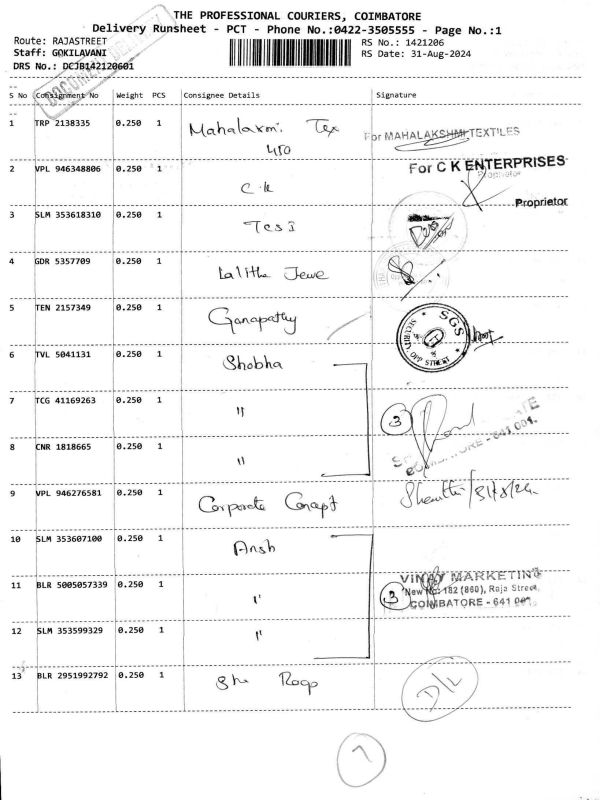 THE PROFESSIONAL COURIERS, COIMBATORE
Delivery Runsheet - PCT - Phone No.:0422-3505555 - Page No.:1
Route: RAJASTREET
Staff: GOKILAVANI
DRS No.: DCJB142120601
RS No.: 1421206
RS Date: 31-Aug-2024
S No Consignment No Weight PCS Consignee Details Signature
1 TRP 2138335 0.250 1 Mahalaxmi Tex
450
For MAHALAKSHMI TEXTILES
2 VPL 946348806 0.250 1 C.K
For C K ENTERPRISES
Proprietor
Proprietor
3 SLM 353618310 0.250 1
4 GDR 5357709 0.250 1 Lalitha Jewe
5 TEN 2157349 0.250 1 Ganapathy
SGS
SECURITY
OPP STREET
6 TVL 5041131 0.250 1 Shobha
7 TCG 41169263 0.250 1 "
3
8 CNR 1818665 0.250 1 "
COIMBATORE - 641 001.
9 VPL 946276581 0.250 1 Corporate Concept
31/8/24
10 SLM 353607100 0.250 1 Ansh
11 BLR 5005057339 0.250 1 "
3
VINAY MARKETING
New No: 182 (860), Raja Street,
COIMBATORE - 641 001
12 SLM 353599329 0.250 1 "
13 BLR 2951992792 0.250 1 Sha Roop
D/L
7